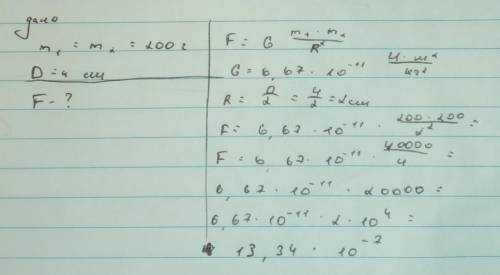 дано
m₁ = m₂ = 200 г
D = 4 см
F - ?
F = G (m₁ · m₂)/R²
G = 6,67 · 10⁻¹¹ (Н · м²)/кг²
R = D/2 = 4/2 = 2 см
F = 6,67 · 10⁻¹¹ · (200 · 200)/2² =
F = 6,67 · 10⁻¹¹ · 40000/4 =
6,67 · 10⁻¹¹ · 20000 =
6,67 · 10⁻¹¹ · 2 · 10⁴ =
13,34 · 10⁻⁷